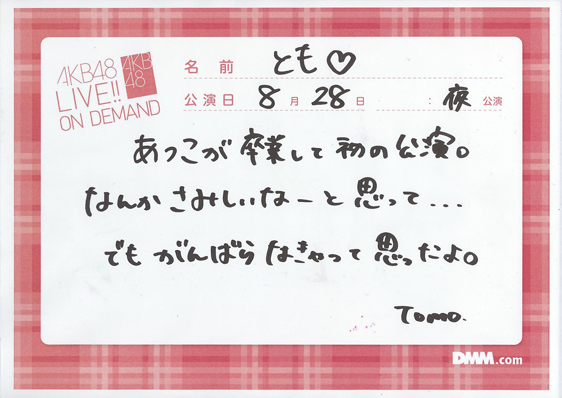 AKB48
LIVE!!
ON DEMAND
AKB
48
名前 とも♡
公演日 8月28日 : 夜 公演
あつこが卒業して初の公演。
なんかさみしいなーと思って...
でもがんばらなきゃって思ったよ。
Tomo.
DMM.com